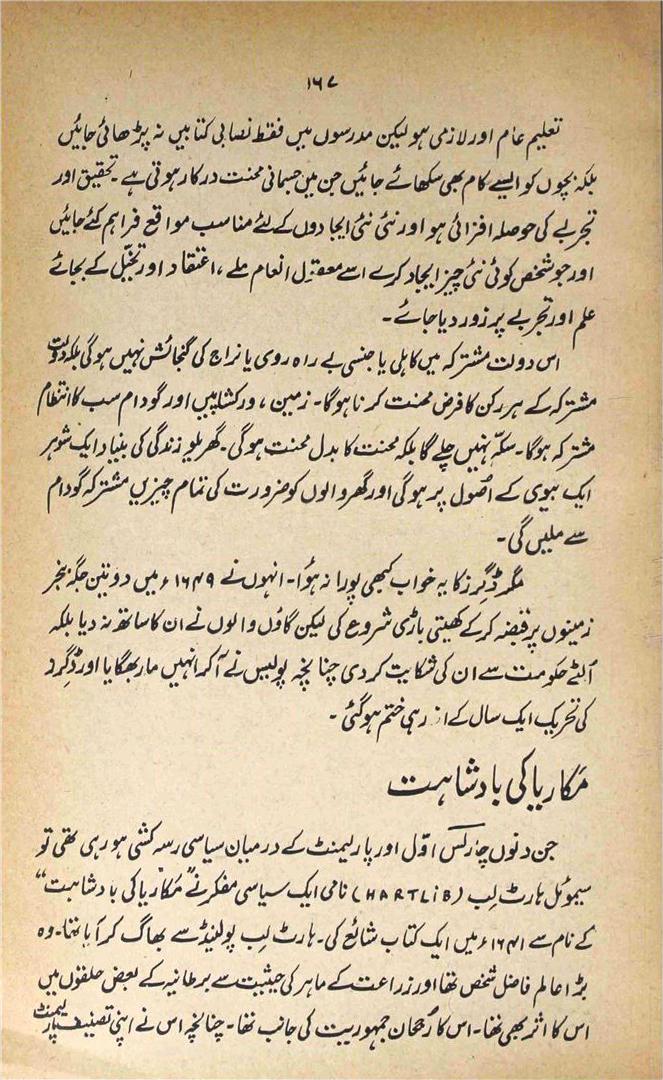 ۱۶۷
تعلیم عام اور لازمی ہو لیکن مدرسوں میں فقط نصابی کتابیں نہ پڑھائی جائیں
بلکہ بچوں کو ایسے کام بھی سکھائے جائیں جن میں جسمانی محنت درکار ہوتی ہے۔ تحقیق اور
تجربے کی حوصلہ افزائی ہو اور نئی نئی ایجادوں کے لئے مناسب مواقع فراہم کئے جائیں
اور جو شخص کوئی نئی چیز ایجاد کرے اسے معقول انعام ملے، اعتقاد اور تخیّل کے بجائے
علم اور تجربے پر زور دیا جائے۔
اس دولت مشترکہ میں کاہلی یا جنسی بے راہ روی یا نراج کی گنجائش نہیں ہوگی بلکہ دولت
مشترکہ کے ہر رکن کا فرض محنت کرنا ہوگا۔ زمین، ورکشاپیں اور گودام سب کا انتظام
مشترکہ ہوگا۔ سکہّ نہیں چلے گا بلکہ محنت کا بدل محنت ہوگی۔ گھریلو زندگی کی بنیاد ایک شوہر
ایک بیوی کے اصول پر ہوگی اور گھر والوں کو ضرورت کی تمام چیزیں مشترکہ گودام
سے ملیں گی۔
مگر ڈِگرز کا یہ خواب کبھی پورا نہ ہُوا۔ انہوں نے ۱۶۴۹ء میں دو تین جگہ بنجر
زمینوں پر قبضہ کرکے کھیتی باڑی شروع کی لیکن گاؤں والوں نے ان کا ساتھ نہ دیا بلکہ
اُلٹے حکومت سے ان کی شکایت کر دی چنانچہ پولیس نے آکر انہیں مار بھگایا اور ڈِگرز
کی تحریک ایک سال کے اندر ہی ختم ہوگئی۔
مَکاریا کی بادشاہت
جن دنوں چارلس اوّل اور پارلیمنٹ کے درمیان سیاسی رسہ کشی ہو رہی تھی تو
سیموئل ہارٹ لِب (HARTLIB) نامی ایک سیاسی مفکر نے "مَکاریا کی بادشاہت"
کے نام سے ۱۶۴۱ء میں ایک کتاب شائع کی۔ ہارٹ لِب پولینڈ سے بھاگ کر آیا تھا۔ وہ
بڑا عالم فاضل شخص تھا اور زراعت کے ماہر کی حیثیت سے برطانیہ کے بعض حلقوں میں
اس کا اثر بھی تھا۔ اس کا رُجحان جمہوریت کی جانب تھا۔ چنانچہ اس نے اپنی تصنیف پارلیمنٹ